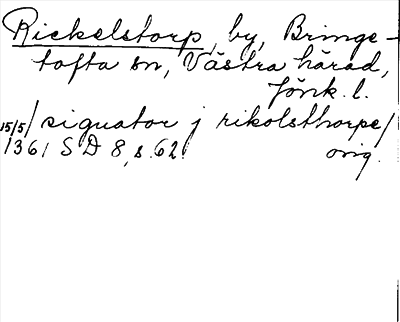 Rickelstorp, by, Bringe-
tofta sn, Västra härad,
Jönk. l.
15/5 / signator j rikolsthorpe /
1361 SD 8, s. 62. orig.